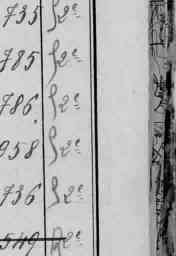 735 2e
785 2e
786. 2e
958 2e
736 2e
549 2e